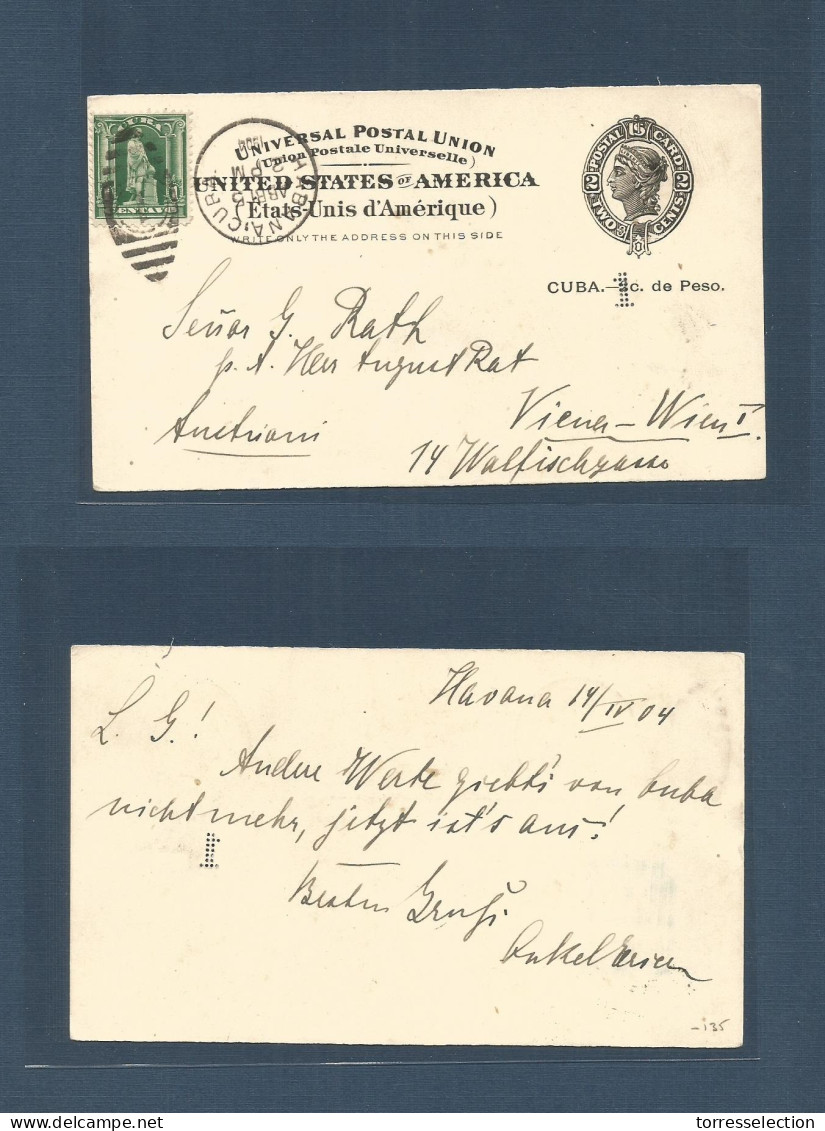 CUBA
CENTAVO
HABANA, CUBA.
ABR
5 PM
1904
UNIVERSAL POSTAL UNION
(Union Postale Universelle)
UNITED STATES OF AMERICA
(États-Unis d'Amérique)
WRITE ONLY THE ADDRESS ON THIS SIDE
U.S.
POSTAL CARD
2 2
TWO CENTS
CUBA.— c. de Peso.
1
Señor G. Rath
p. A. Herr August Rat
Viena-Wien I.
Austriani
14 Walfischgasse
Havana 14/IV 04
L. G.!
Andere Werte giebt's von Cuba
nicht mehr, jetzt ist's aus!
1
Besten Gruß
Onkel
-135
delcampe.net
torresseleccion